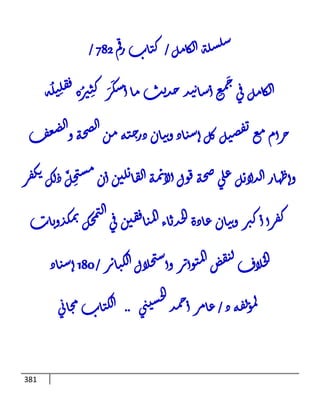 سلسلة الكامل / كتاب رقم 782 /
الكامل في جَمْع أسانيد حديث ما أسكَرَ كَثِيرُه فقَلِيلُه
حرام مع تفصيل كل إسناد وبيان درجته من الصحة والضعف
وإظهار الدلائل علي صحة قول الأئمة القائلين أن مستحِلّ ذلك يكفر
كفرا أكبر وبيان عادة الحدثاء المنافقين في التمحّك بمكذوبات
الخلاف لنقض المتواتر واستحلال الكبائر / 180 إسناد
لمؤلفه د / عامر أحمد الحسيني .. الكتاب مجاني
381